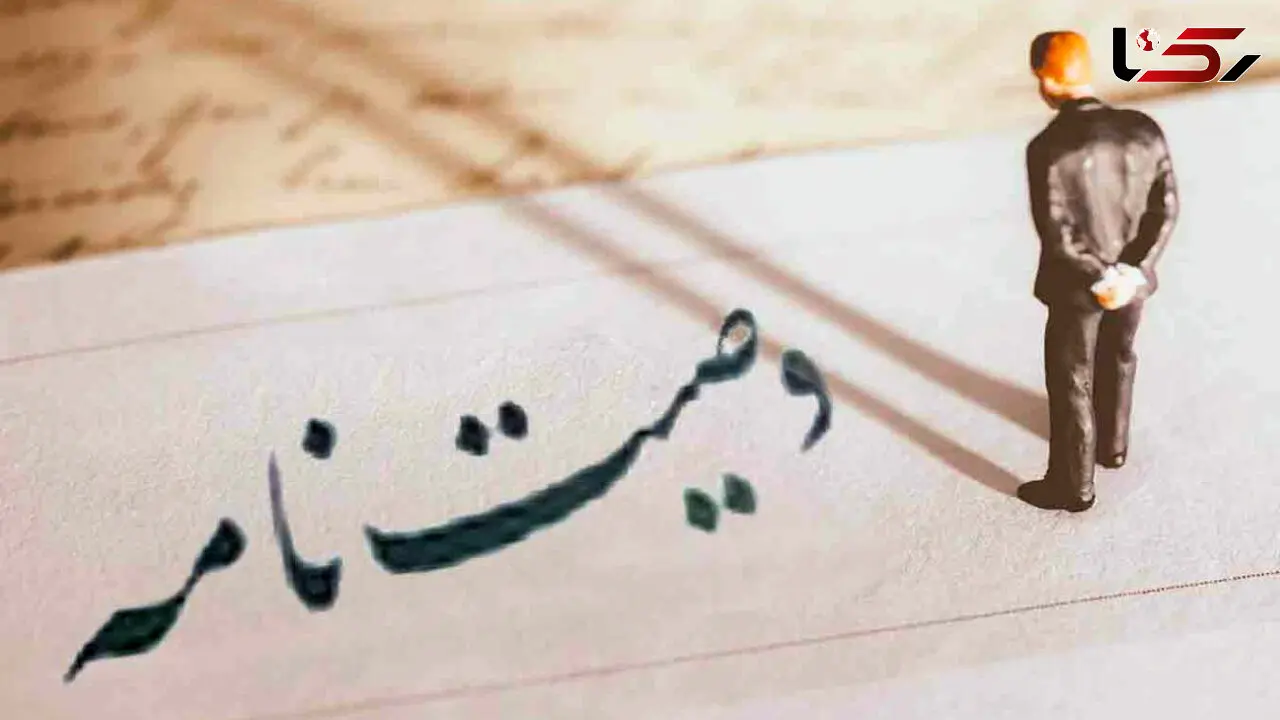 رکنا
وصیت‌نامه